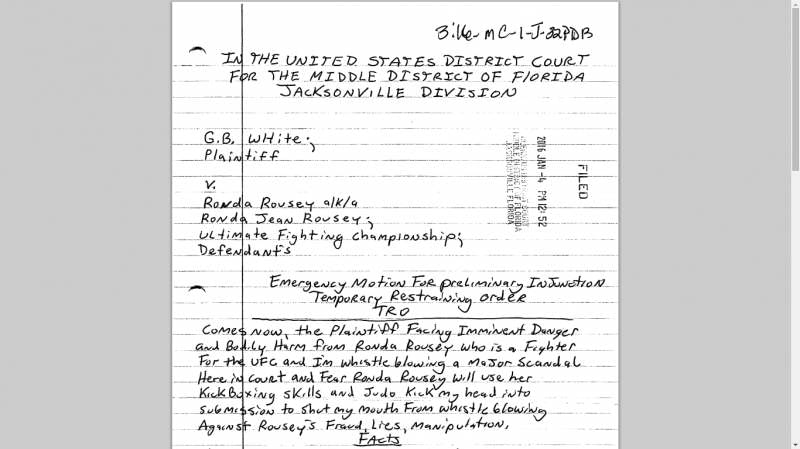 3:16-mc-1-J-32PDB
IN THE UNITED STATES DISTRICT COURT
FOR THE MIDDLE DISTRICT OF FLORIDA
JACKSONVILLE DIVISION
G.B. WHite;,
Plaintiff
V.
Ronda Rousey a/k/a
Ronda Jean Rousey;
Ultimate Fighting Championship;
Defendants
FILED
2016 JAN -4 PM 12:52
JACKSONVILLE FLORIDA
Emergency Motion For Preliminary Injunction
Temporary Restraining order
TRO
Comes now, the Plaintiff Facing Imminent Danger
and Bodily Harm from Ronda Rousey who is a Fighter
For the UFC and I'm whistle blowing a Major Scandal
Here in court and Fear Ronda Rousey will use her
KickBoxing skills and Judo Kick my head into
submission to shut my mouth From whistle blowing
Against Rousey's Fraud, Lies, Manipulation.
Facts